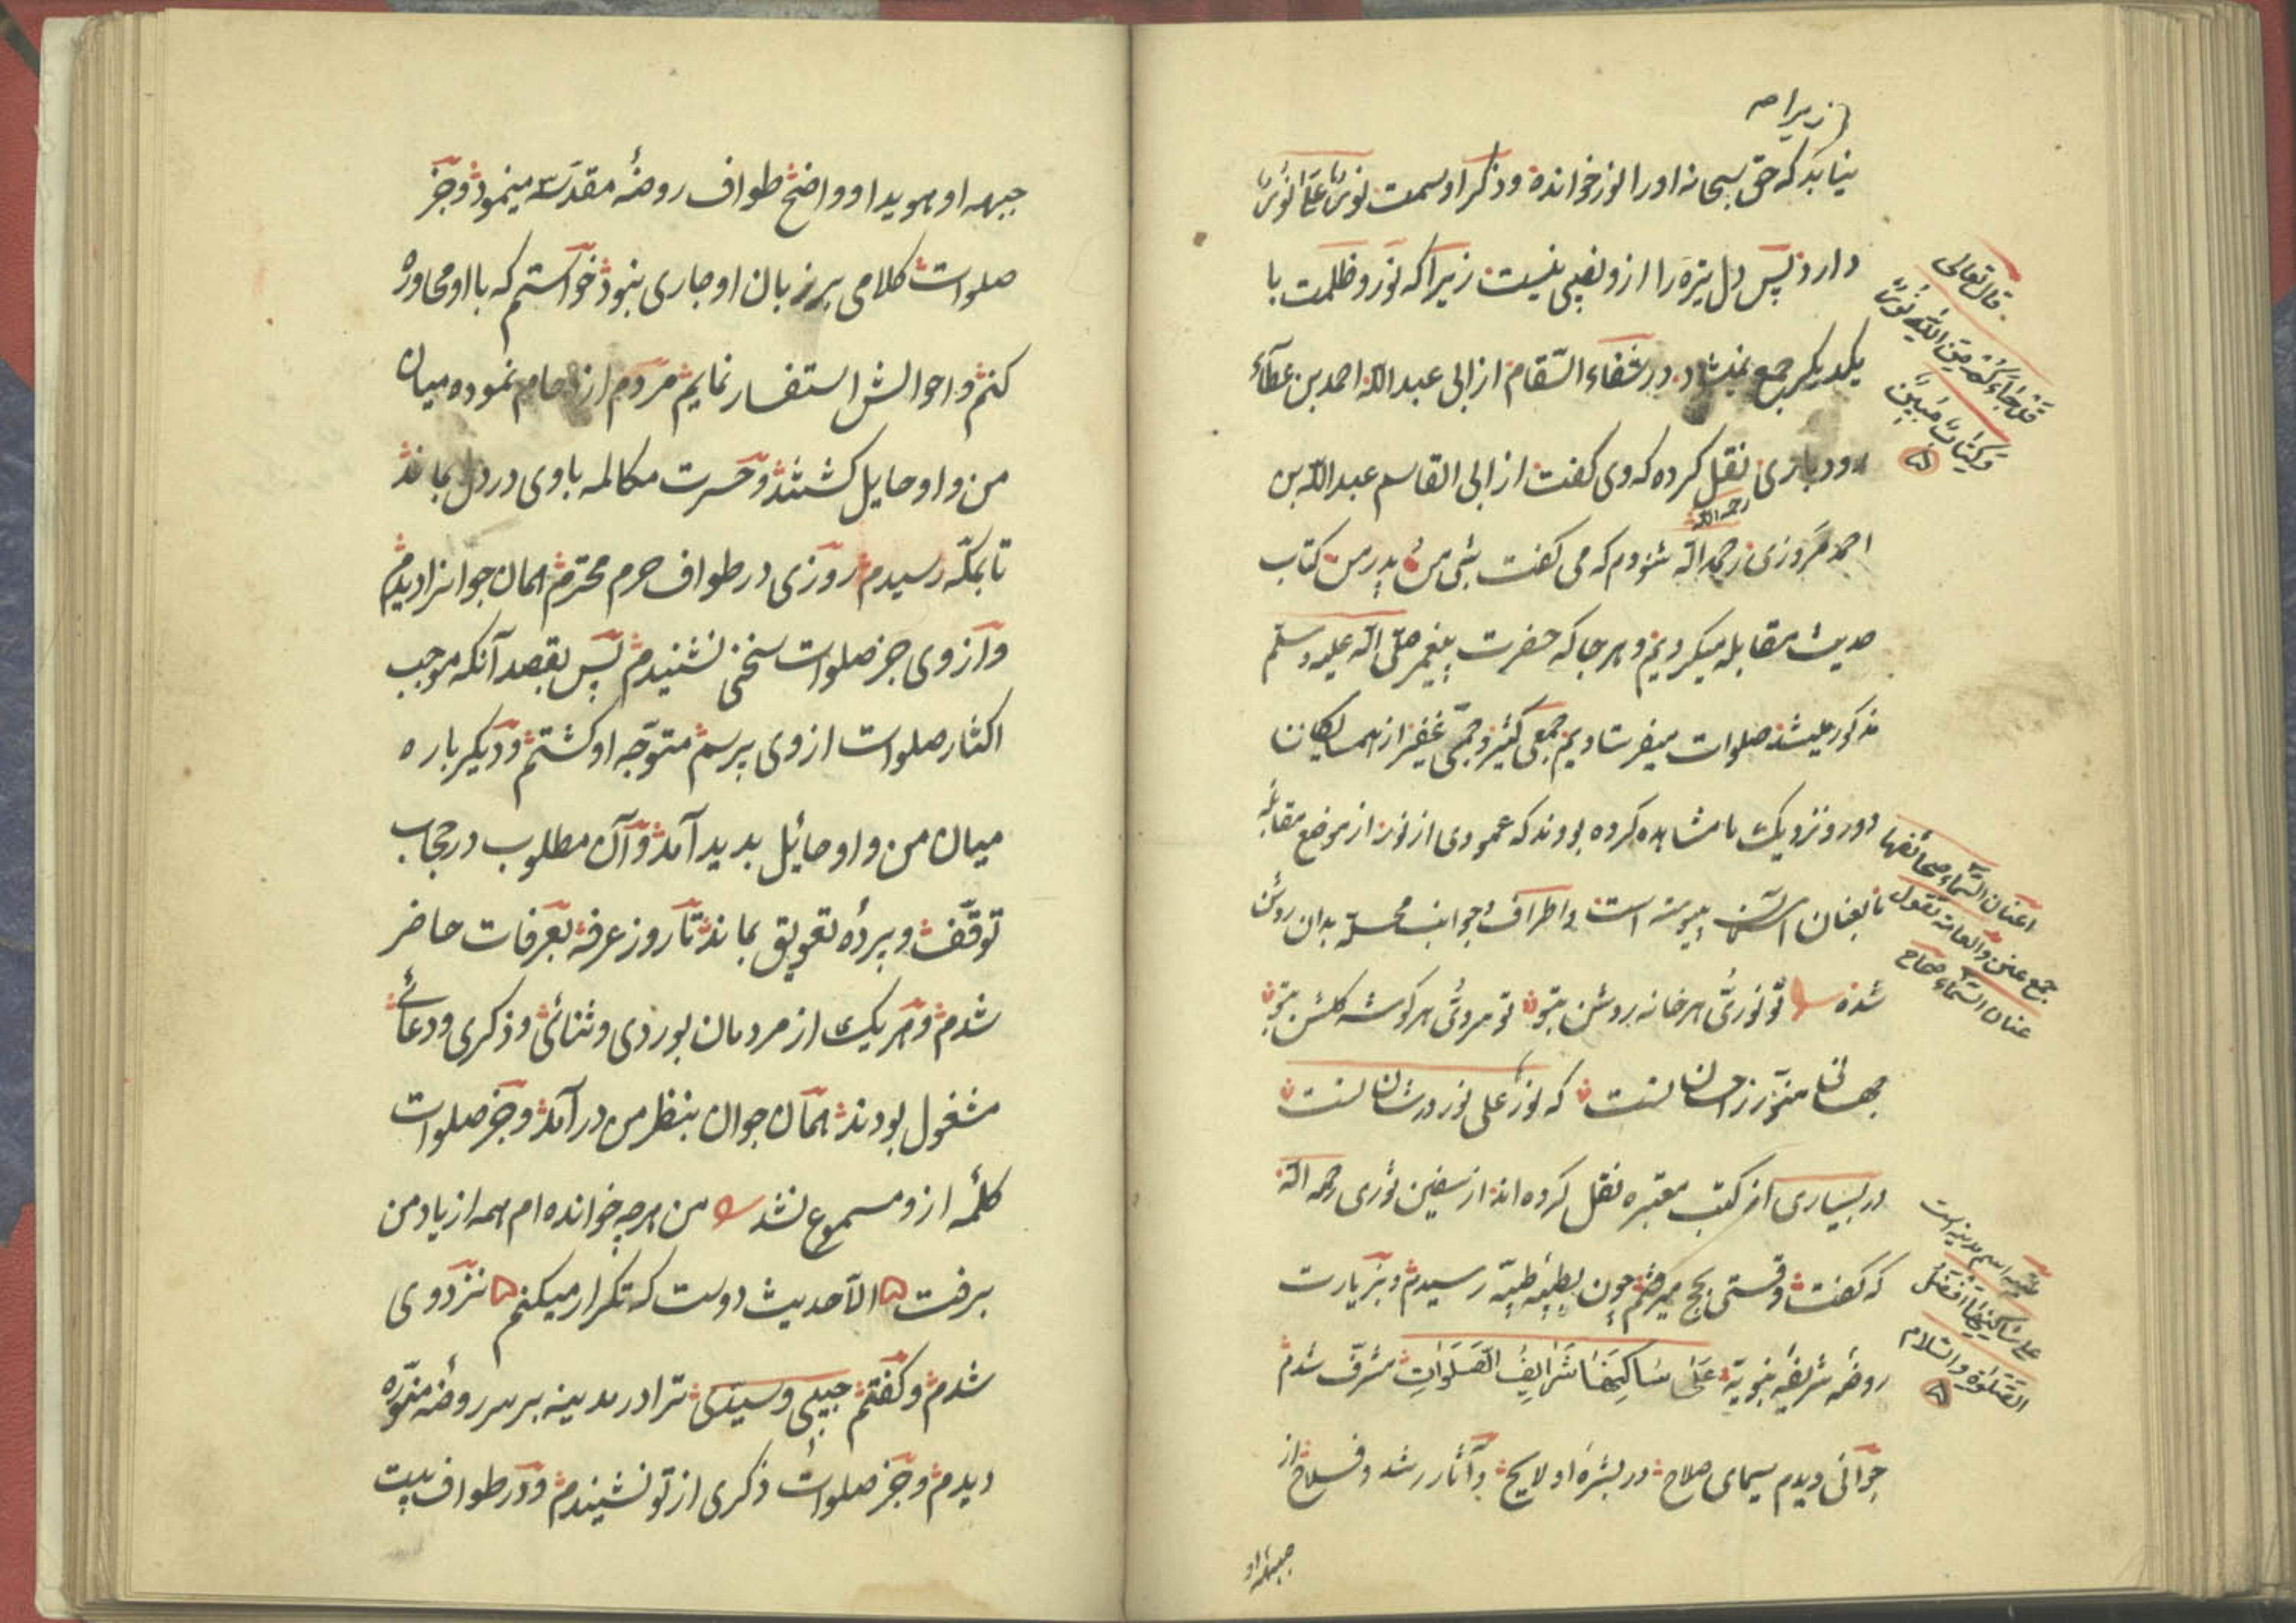 زیرا صه
نیابد که حق سبحانه او را نور خوانده و ذکر او سمت نورٌ علیٰ نورٍ
دارد پس دل تیره را ازو نصیبی نیست زیرا که نور و ظلمت با
یکدیگر جمع نمیشاد در شفاء السّقام از ابی عبد الله احمد بن عطآء
رودباری نقل کرده که وی گفت از ابی القاسم عبد الله بن
رحمه الله
احمد مَروزی رحمه الله شنودم که می گفت شبی من و پدر من کتاب
حدیث مقابله میکردیم و هر جا که حضرت پیغمبر صلّی الله علیه وسلّم
مذکور میشد صلوات میفرستادیم جمعی کثیر و جمّی غفیر از همسایکان
دور و نزدیک ما مشاهده کرده بودند که عمودی از نور از موضع مقابلهٔ
ما بعنان آسمان پیوسته است و اطراف و جوانب محلّه بدان روشن
شده تو نوری هر خانه روشن بتو تو سروی هر کوشه کلشن بتو
جهانی منوّر ز احسان تست که نورٌ علی نور در شان تست
در بسیاری از کتب معتبره نقل کرده اند از سفین ثوری رحمه الله
که گفت وقتی بحج میرفتم چون بطیبهٔ طیّبه رسیدم و بزیارت
روضهٔ شریفهٔ نبویّه عَلیٰ سَاکِنِهَا شَرَایِفُ الصَّلَوَاتِ مشرّف شدم
جوانی دیدم سیمای صلاح در بشرهٔ او لایح و آثار رشد و فلاح از
جبههٔ او
قال تعالی
قَدْ جَاءَکُمْ مِنَ اللهِ نُورٌ
وَکِتَابٌ مُبِینٌ
اعنان السّماء صحائفها
جمع عنن والعامّة تقول
عنان السّماء صحاح
طیبه اسم مدینه است
علی ساکنیها افضل
الصّلوٰة والسّلام
جبههٔ او هویدا و واضح طواف روضهٔ مقدّسه مینمود و جز
صلوات کلامی بر زبان او جاری نبود خواستم که با او محاوره
کنم و احوالش استفسار نمایم مردم ازدحام نموده میان
من و او حایل کشتند و حسرت مکالمه با وی در دل بماند
تا بمکّه رسیدم روزی در طواف حرم محترم همان جوانرا دیدم
و از وی جز صلوات سخنی نشنیدم پس بقصد آنکه موجب
اکثار صلوات از وی پرسم متوجّه او کشتم و دیکر باره
میان من و او حائل بدید آمد و آن مطلوب در حجاب
توقّف و پردهٔ تعویق بماند تا روز عرفه بعرفات حاضر
شدم و هر یک از مردمان بوردی و ثنائی و ذکری و دعائی
مشغول بودند همان جوان بنظر من در آمد و جز صلوات
کلمهٔ ازو مسموع نشد من هر چه خوانده ام همه از یاد من
برفت الّا حدیث دوست که تکرار میکنم نزد وی
شدم و گفتم حبیبی و سیّدی ترا در مدینه بر سر روضهٔ منوّره
دیدم و جز صلوات ذکری از تو نشنیدم و در طواف بیت